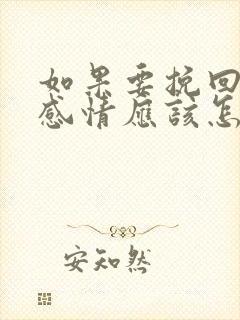 如果要挽回
感情应该怎
安知然